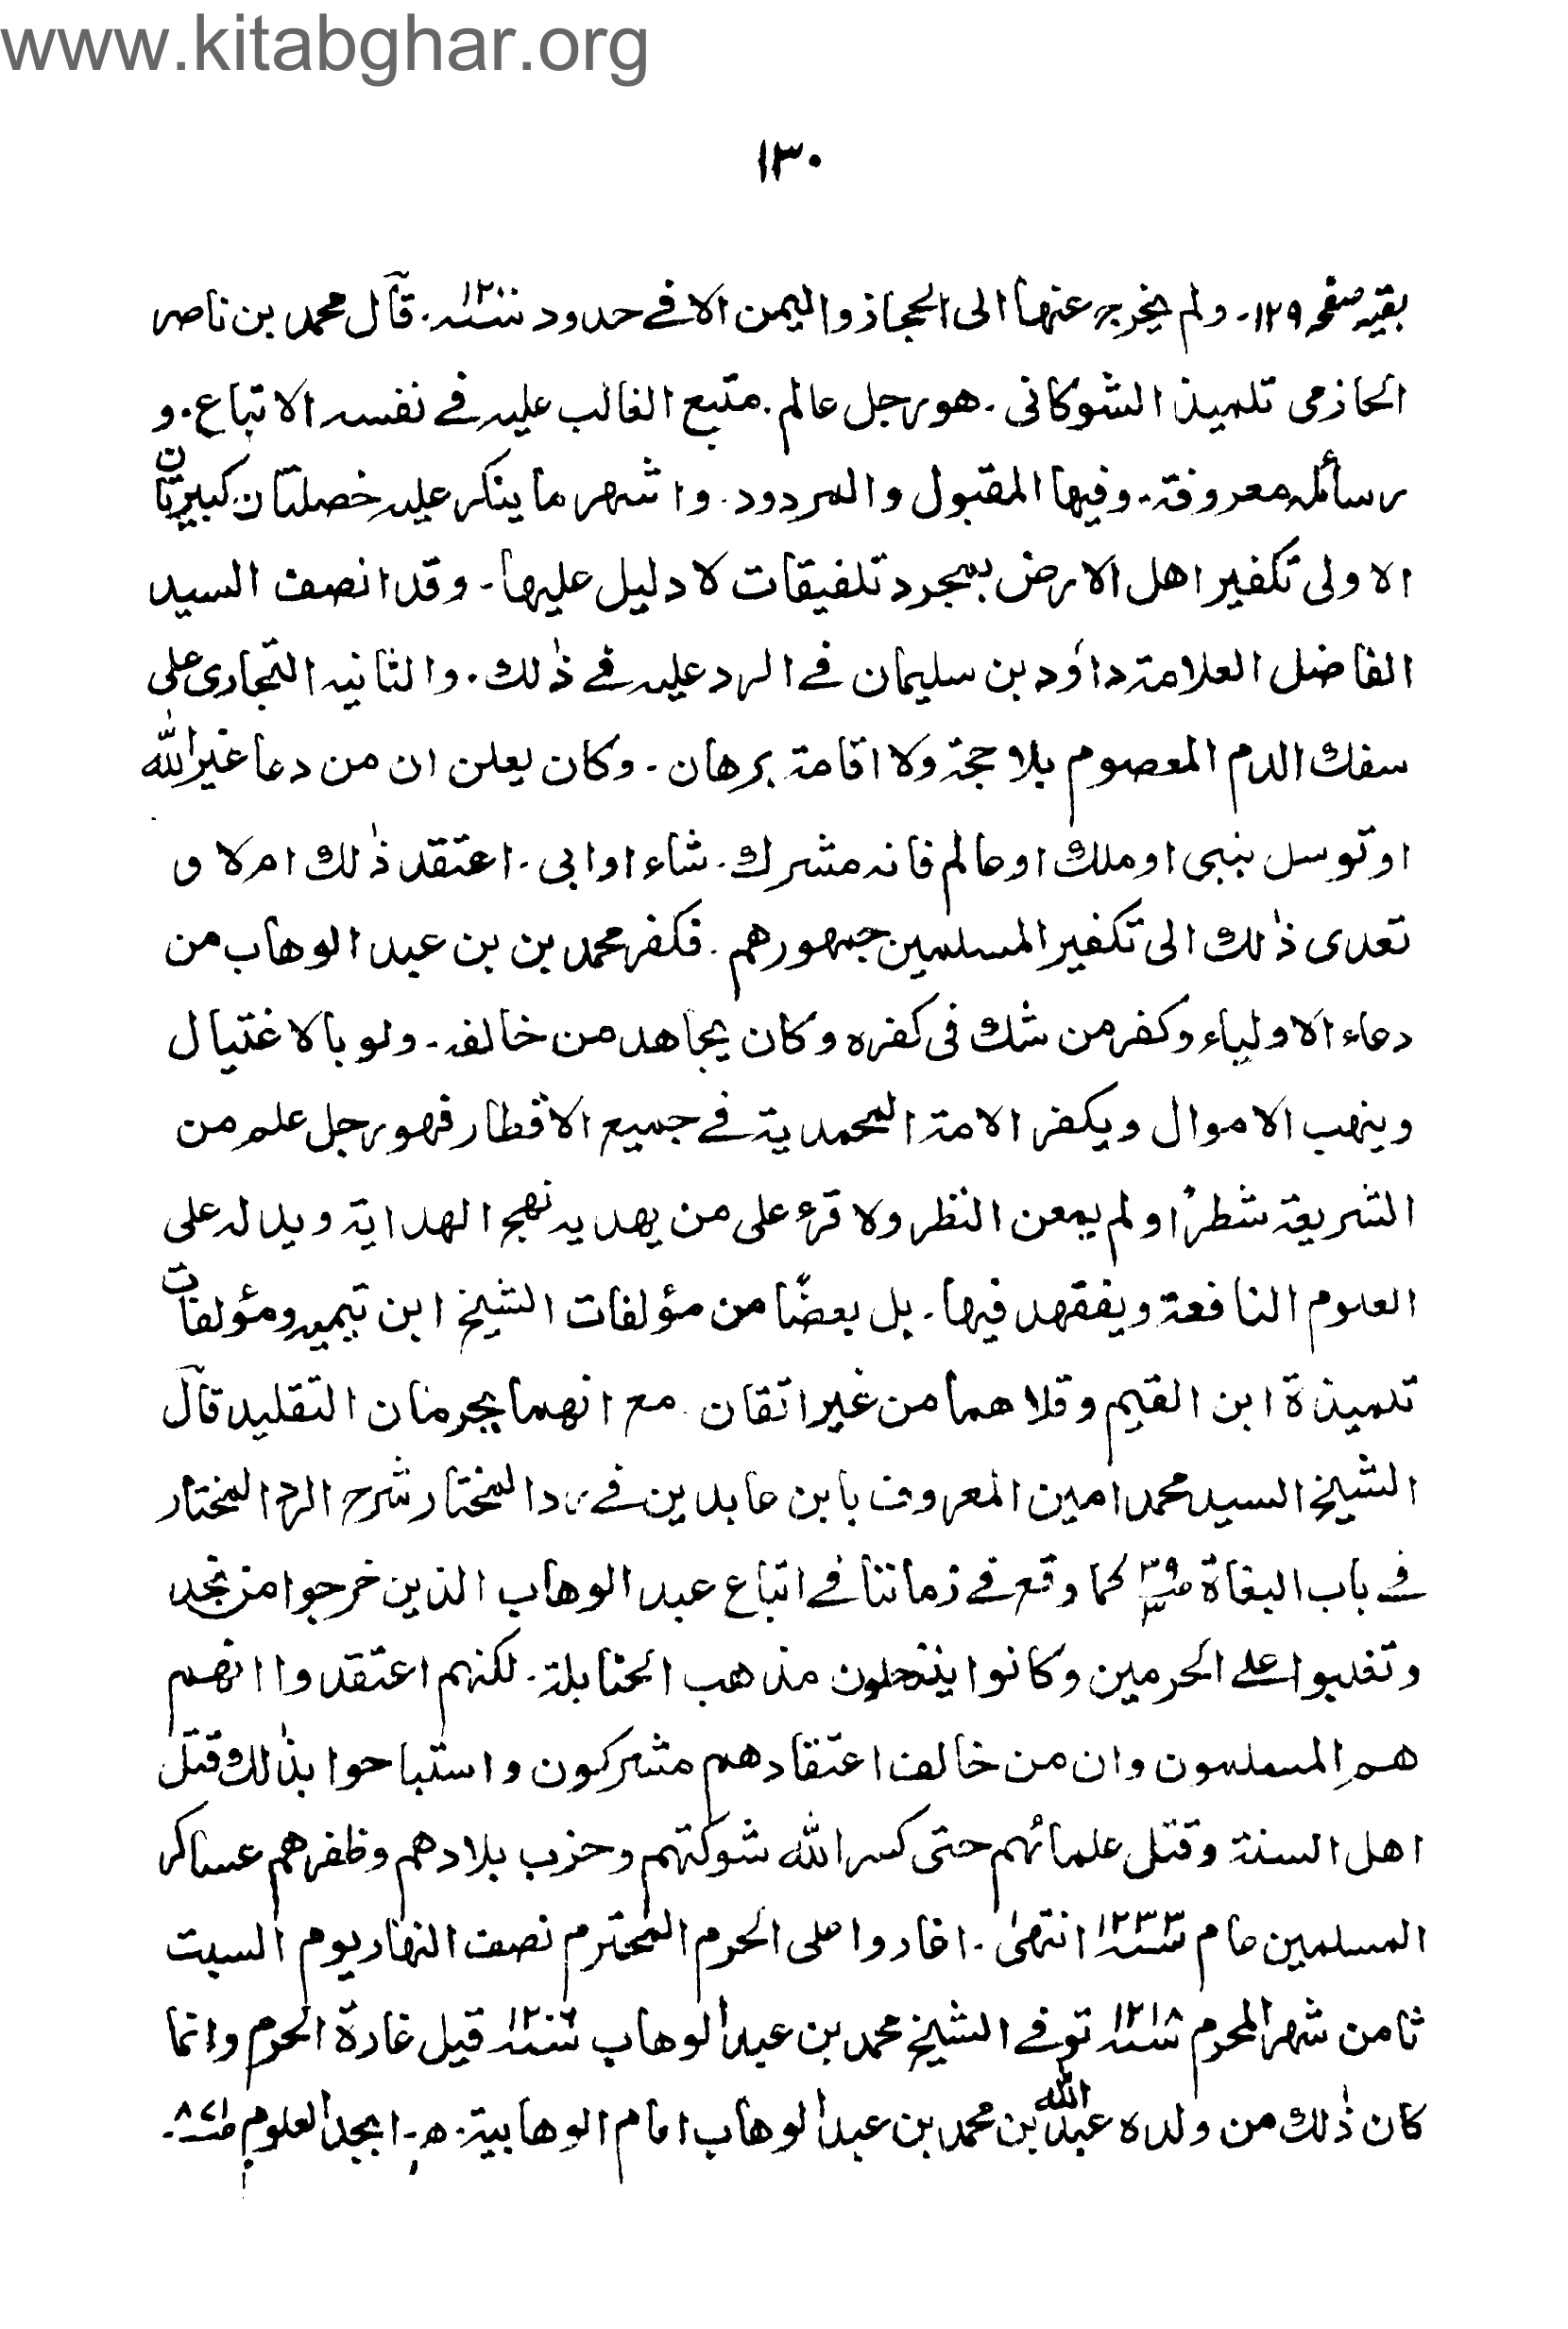 www.kitabghar.org
۱۳۰
بقیہ صفحہ ۱۲۹۔ ولم یخرج عنھا الی الحجاز والیمن الا فے حدود سنہ ۱۲۰۰۔ قال محمد بن ناصر
الحازمی تلمیذ الشوکانی۔ ھو رجل عالم۔ متبع الغالب علیہ فے نفسہ الاتباع۔ و
رسائلہ معروفۃ۔ وفیھا المقبول والمردود۔ واشھر ما ینکر علیہ خصلتان کبیرتان
الاولی تکفیر اھل الارض بمجرد تلفیقات لا دلیل علیھا۔ وقد انصف السید
الفاضل العلامۃ داؤد بن سلیمان فے الرد علیہ فے ذٰلک۔ والثانیہ التجاری علی
سفک الدم المعصوم بلا حجۃ ولا اقامۃ برھان۔ وکان یعلن ان من دعا غیر اللہ
او توسل بنبی او ملک او عالم فانہ مشرک۔ شاء او ابی۔ اعتقد ذٰلک ام لا و
تعدی ذٰلک الی تکفیر المسلمین جمہورھم۔ فکفر محمد بن بن عبد الوھاب من
دعاء الاولیاء وکفر من شک فی کفرہ وکان یجاھد من خالفہ۔ ولو بالاغتیال
وینھب الاموال ویکفر الامۃ المحمدیۃ فے جمیع الاقطار فھو رجل علم من
الشریعۃ شطرًا ولم یمعن النظر ولا قرء علی من یھدیہ نھج الھدایۃ ویدلہ علی
العلوم النافعۃ ویفقھہ فیھا۔ بل بعضًا من مؤلفات الشیخ ابن تیمیہ ومؤلفات
تلمیذۃ ابن القیم وقلاھما من غیر اتقان۔ مع انھما یجرمان التقلید قال
الشیخ السید محمد امین المعروف بابن عابدین فے رد المختار شرح الدر المختار
فے باب البغاۃ کما وقع فے زماننا فے اتباع عبد الوھاب الذین خرجوا من نجد
وتغلبوا علی الحرمین وکانوا ینتحلون مذھب الحنابلۃ۔ لکنہم اعتقدوا انھم
ھم المسلمون وان من خالف اعتقادھم مشرکون واستباحوا بذٰلک وقتل
اھل السنۃ وقتل علمائہم حتی کسر اللہ شوکتہم وخرب بلادھم وظفرھم عساکر
المسلمین عام سنہ ۱۲۳۳ انتھیٰ۔ اغاروا علی الحرم المحترم نصف النھار یوم السبت
ثامن شھر المحرم سنہ ۱۲۱۸ توفے الشیخ محمد بن عبد الوھاب سنہ ۱۲۰۶ قبل غارۃ الحرم وانما
کان ذٰلک من ولدہ عبد اللہ بن محمد بن عبد الوھاب امام الوھابیۃ۔ ھ۔ ابجد العلوم ص ۸۷۱۔